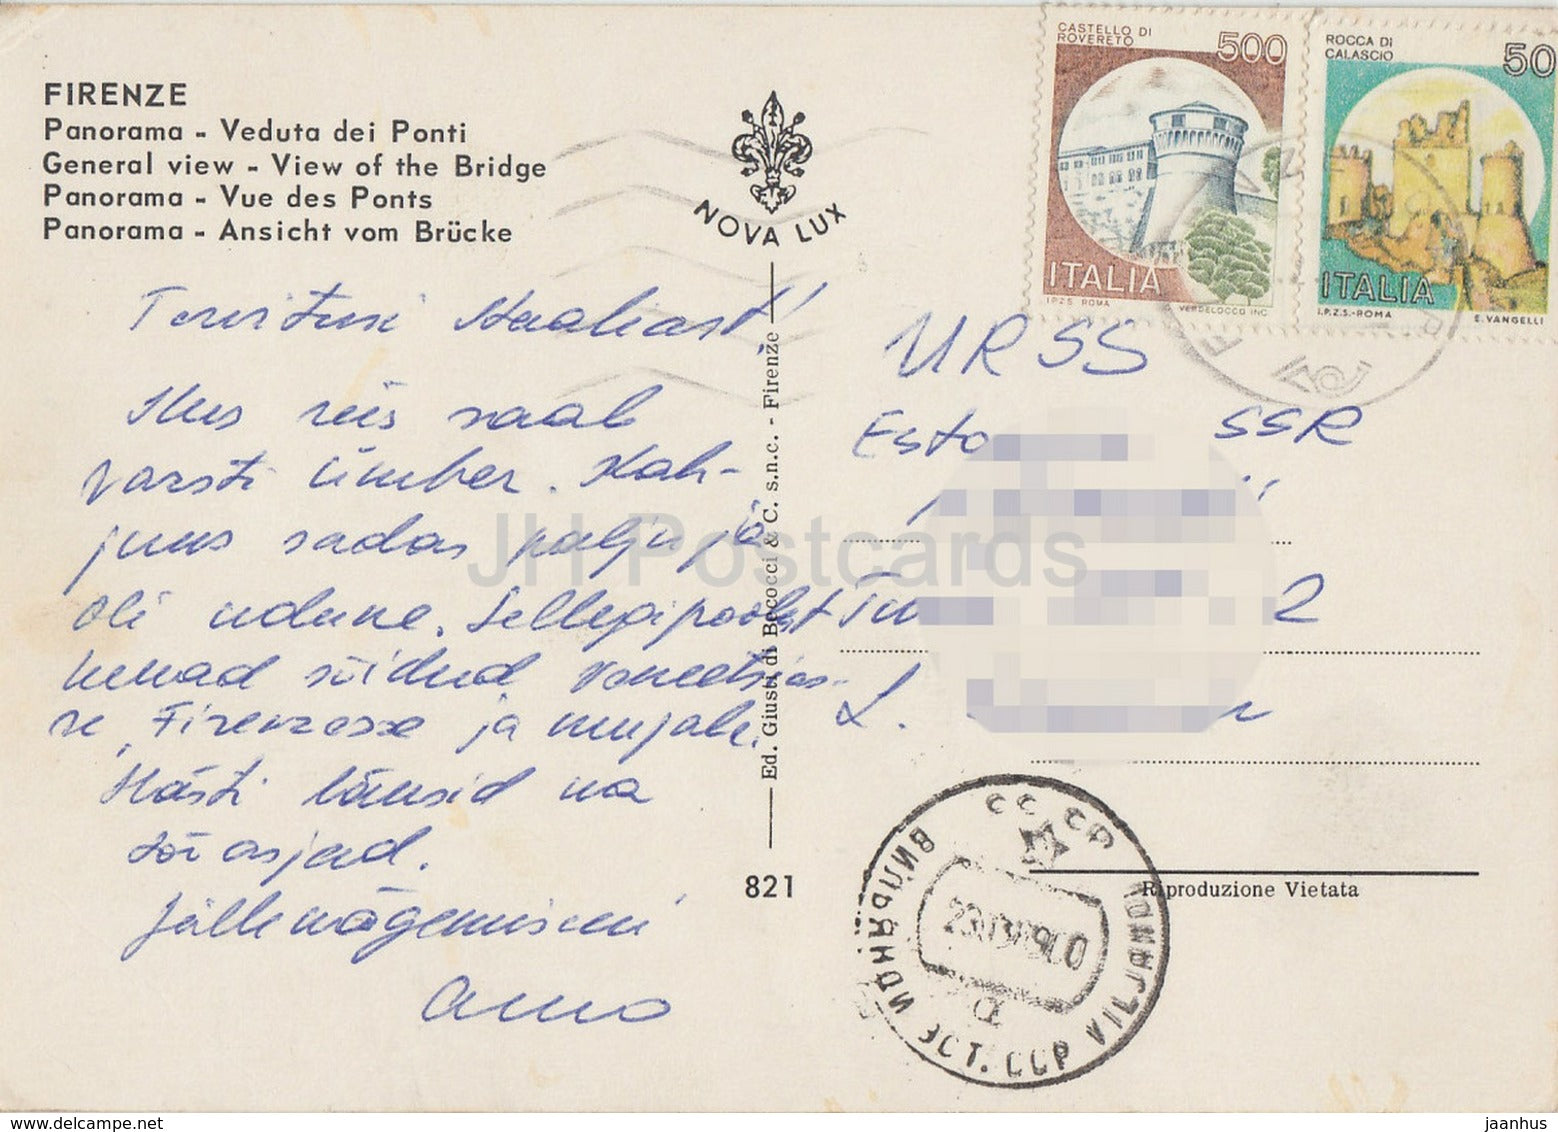 FIRENZE
Panorama - Veduta dei Ponti
General view - View of the Bridge
Panorama - Vue des Ponts
Panorama - Ansicht vom Brücke
NOVA LUX
CASTELLO DI
ROVERETO
500
ITALIA
I.P.Z.S. ROMA
VERDELOCCO INC.
ROCCA DI
CALASCIO
50
ITALIA
I.P.Z.S.-ROMA
E. VANGELLI
Tervitusi Itaaliast!
Kus reis saab
varsti ümber. Kah-
juks sadas palju ja
oli udune. Sellegipoolest
kenad sõidud Veneetsias-
se, Firenzesse ja mujale.
Hästi läksid ka
söögiasjad.
Jällenägemiseni
Anno
Ed. Giusti di Becocci & C. s.n.c. - Firenze
821
URSS
SSR
2
L.
Riproduzione Vietata
СССР
ВИЛЬЯНДИ ЭСТ. ССР VILJANDI
JH Postcards
jaanhus © www.delcampe.net